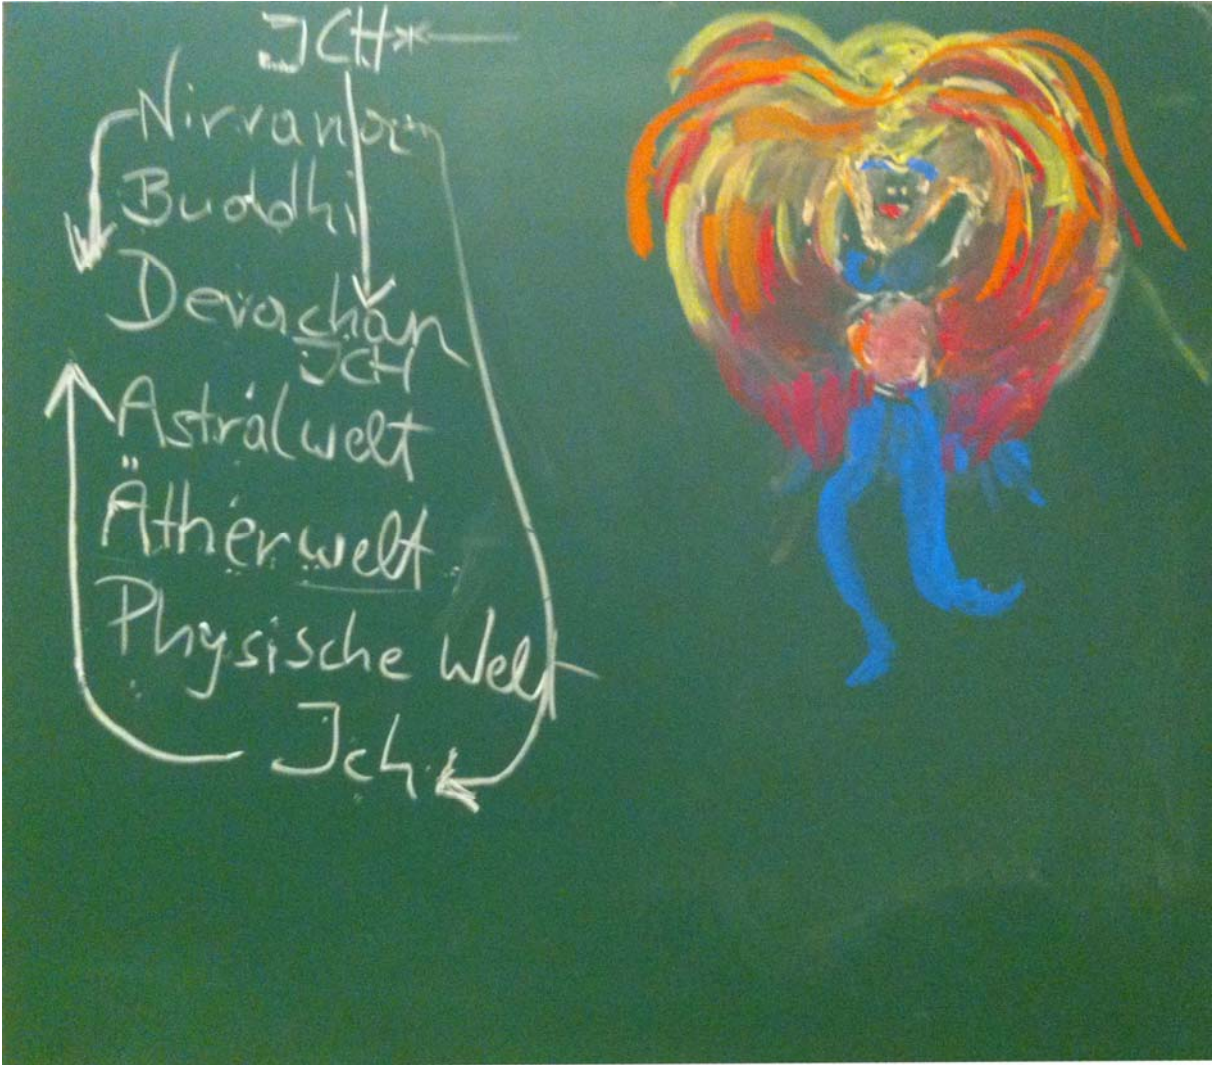 ICH
Nirvana
Buddhi
Devachan
ICH
Astralwelt
Ätherwelt
Physische Welt
Ich